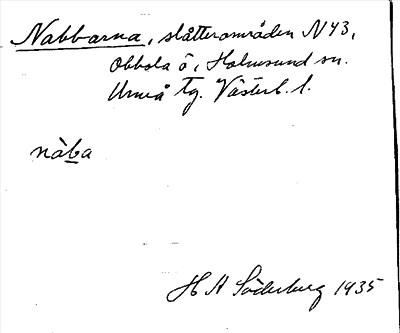 Nabbarna, slåtterområden N 43,
Obbola ö, Holmsund sn.
Umeå tg. Västerb. l.
nàba
H A Söderberg 1935